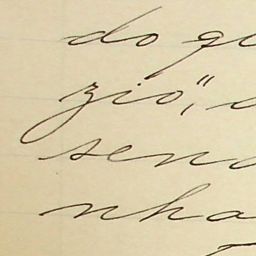 do qu
zio", d
send
nha